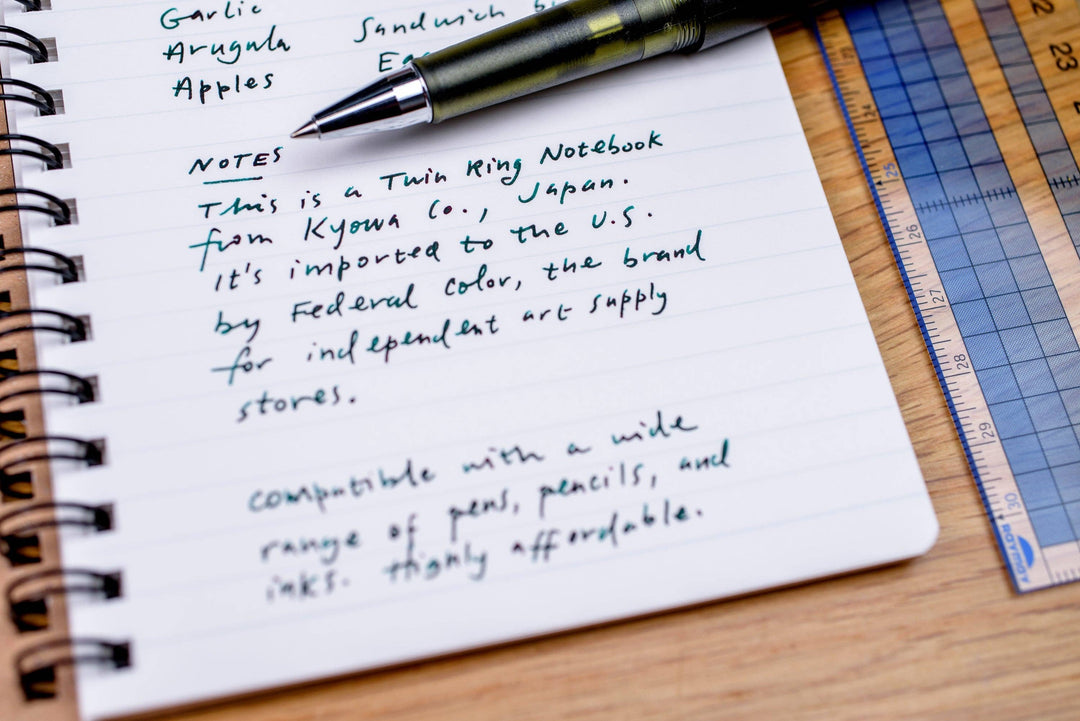 Garlic
Arugula
Apples
Sandwich
NOTES
This is a Twin Ring Notebook
from Kyowa Co., Japan.
It's imported to the U.S.
by Federal Color, the brand
for independent art supply
stores.
compatible with a wide
range of pens, pencils, and
inks. Highly affordable.
22
23
24
25
26
27
28
29
30